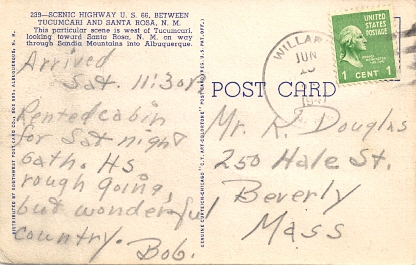 239—SCENIC HIGHWAY U. S. 66, BETWEEN
TUCUMCARI AND SANTA ROSA, N. M.
This particular scene is west of Tucumcari,
looking toward Santa Rosa, N. M. on way
through Sandia Mountains into Albuquerque.
Arrived
Sat. 11:30
Rented cabin
for Sat night
bath. Hs
rough going,
but wonderful
country. Bob.
DISTRIBUTED BY SOUTHWEST POST CARD CO., ALBUQUERQUE, N. M.
GENUINE CURTEICH-CHICAGO "C. T. ART-COLORTONE" POST CARD
WILLAR
JUN
UNITED STATES
POSTAGE
1 CENT 1
POST CARD
Mr. A. Douglas
250 Hale St.
Beverly
Mass